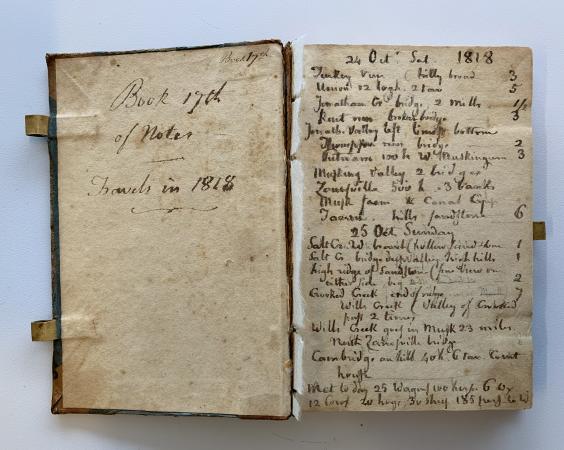 Book 17th
Book 17th
of Notes
Travels in 1818
24 Oct Sat 1818
Turkey run (hilly broad 3
Union 12 logh. 2 tav 5
Jonathan Cr bridge 2 mills 1/2
Kent run broken bridge 3
Jonath. Valley left bottom
Thompson run bridge 2
Putnam 100 h W. Muskingum 3
Musking Valley 2 bridges
Zanesville 500 h. 3 banks
Musk &
Tavern. hills sandstone 6
25 Oct Sunday
Salt Cr. W. (hollow 1
Salt Cr bridge deep valley high hills 1
High ridge of Sandstone (fine view on
either side 2
Crooked Creek end of ridge 7
Wills Creek (Valley of Crooked
pass 2 times
Wills Creek goes in Musk 23 miles
North Zanesville bridge
Cambridge on hill 40 h. 6 tav. Court
house
Met to day 25 Wagons 100 horses 6
12 Cows 20 hogs 30 sheep 185 pers. to W